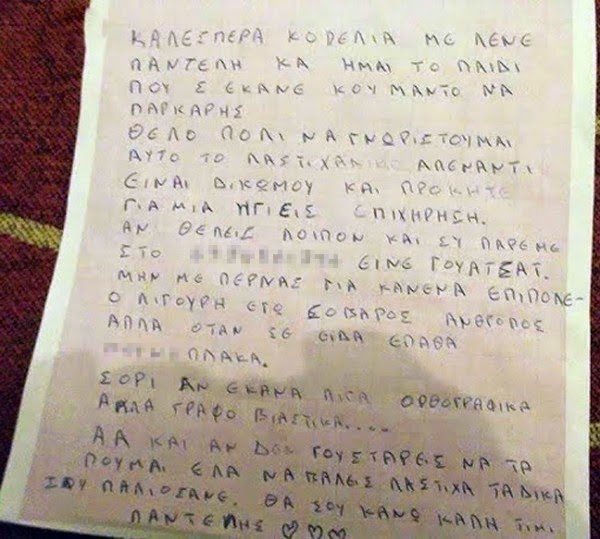 ΚΑΛΕΣΠΕΡΑ ΚΟΠΕΛΙΑ ΜΕ ΛΕΝΕ
ΠΑΝΤΕΛΗ ΚΑ ΗΜΑΙ ΤΟ ΠΑΙΔΙ
ΠΟΥ Σ ΕΚΑΝΕ ΚΟΥΜΑΝΤΟ ΝΑ
ΠΑΡΚΑΡΗΣ
ΘΕΛΟ ΠΟΛΙ ΝΑ ΓΝΩΡΙΣΤΟΥΜΑΙ
ΑΥΤΟ ΤΟ ΛΑΣΤΙΧΑΔΙΚΟ ΑΠΕΝΑΝΤΙ
ΕΙΝΑΙ ΔΙΚΩΜΟΥ ΚΑΙ ΠΡΟΚΗΤΕ
ΓΙΑ ΜΙΑ ΥΓΙΕΙΣ ΕΠΙΧΗΡΗΣΗ.
ΑΝ ΘΕΛΕΙΣ ΛΟΙΠΟΝ ΚΑΙ ΣΥ ΠΑΡΕ ΜΕ
ΣΤΟ ΕΙΝΕ ΓΟΥΑΤΣΑΤ.
ΜΗΝ ΜΕ ΠΕΡΝΑΣ ΓΙΑ ΚΑΝΕΝΑ ΕΠΙΠΟΛΕ-
Ο ΛΙΓΟΥΡΗ ΕΓΩ ΣΟΒΑΡΟΣ ΑΝΘΡΟΠΟΣ
ΑΛΛΑ ΟΤΑΝ ΣΕ ΕΙΔΑ ΕΠΑΘΑ
ΠΛΑΚΑ.
ΣΟΡΙ ΑΝ ΕΚΑΝΑ ΛΙΓΑ ΟΡΘΟΓΡΑΦΙΚΑ
ΑΛΛΑ ΓΡΑΦΟ ΒΙΑΣΤΙΚΑ.....
ΑΑ ΚΑΙ ΑΝ ΔΕΝ ΓΟΥΣΤΑΡΕΙΣ ΝΑ ΤΑ
ΠΟΥΜΑΙ ΕΛΑ ΝΑ ΒΑΛΕΙΣ ΛΑΣΤΙΧΑ ΤΑ ΔΙΚΑ
ΣΟΥ ΠΑΛΙΟΣΑΝΕ. ΘΑ ΣΟΥ ΚΑΝΩ ΚΑΛΗ ΤΙΜΙ.
ΠΑΝΤΕΛΗΣ ♡♡♡